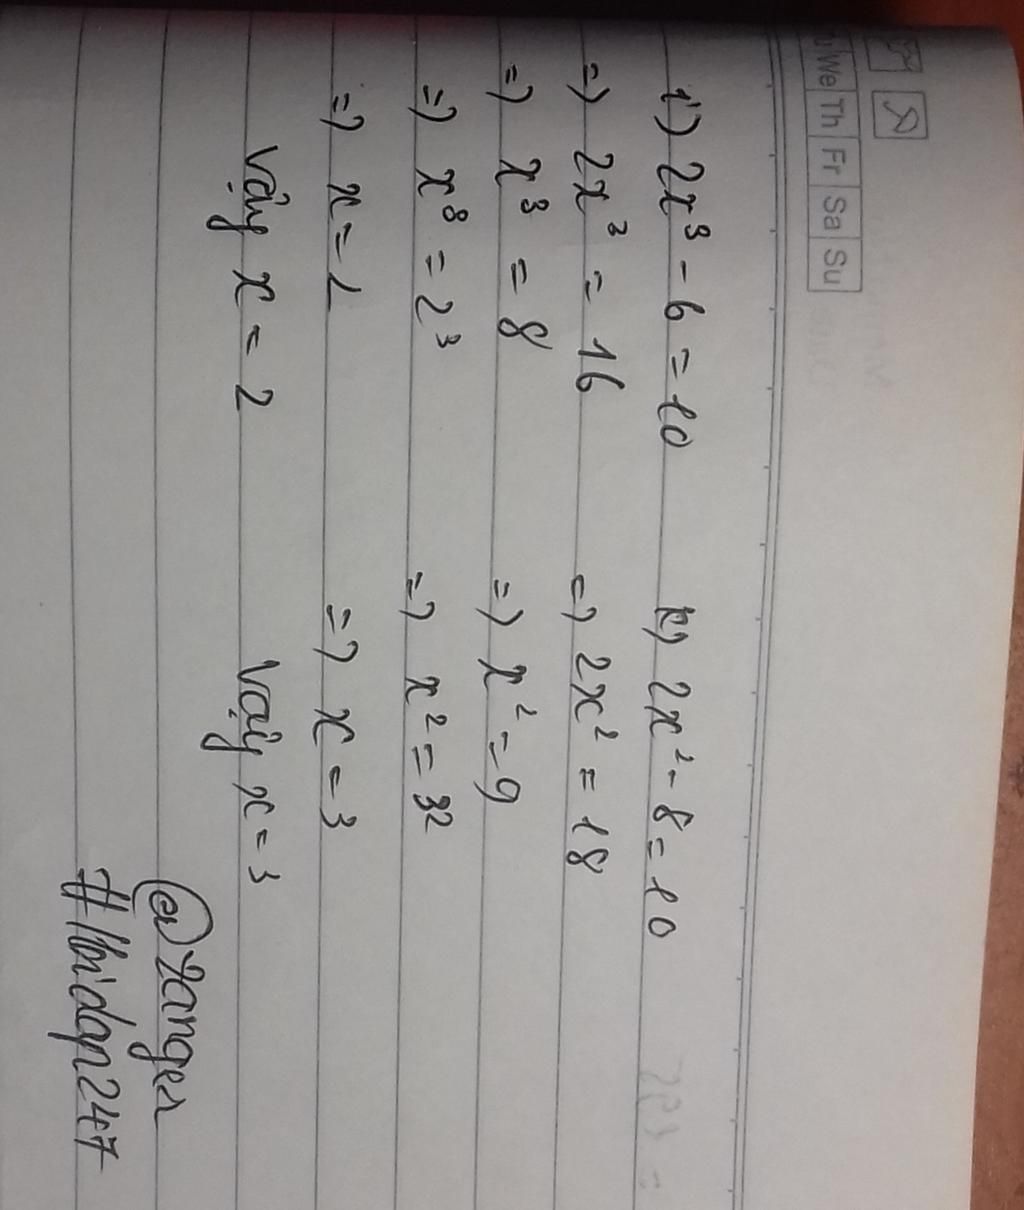 We Th Fr Sa Su
i) 2x³ - 6 = 10
=) 2x³ = 16
=) x³ = 8
=) x³ = 2³
=) x = 2
Vậy x = 2
k) 2x² - 8 = 10
=) 2x² = 18
=) x² = 9
=) x² = 3²
=) x = 3
Vậy x = 3
#hoidap247